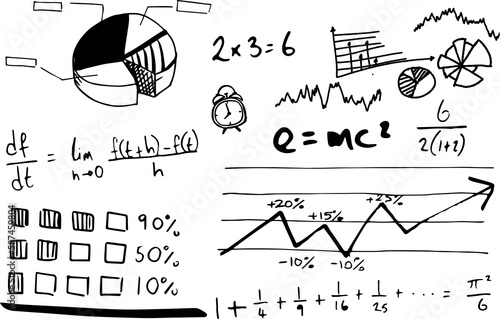 2 × 3 = 6
e = mc²
6 / 2(1+2)
df/dt = lim h→0 f(t+h) − f(t) / h
+20% +15% +25%
−10% −10%
90%
50%
10%
1 + 1/4 + 1/9 + 1/16 + 1/25 + ··· = π²/6